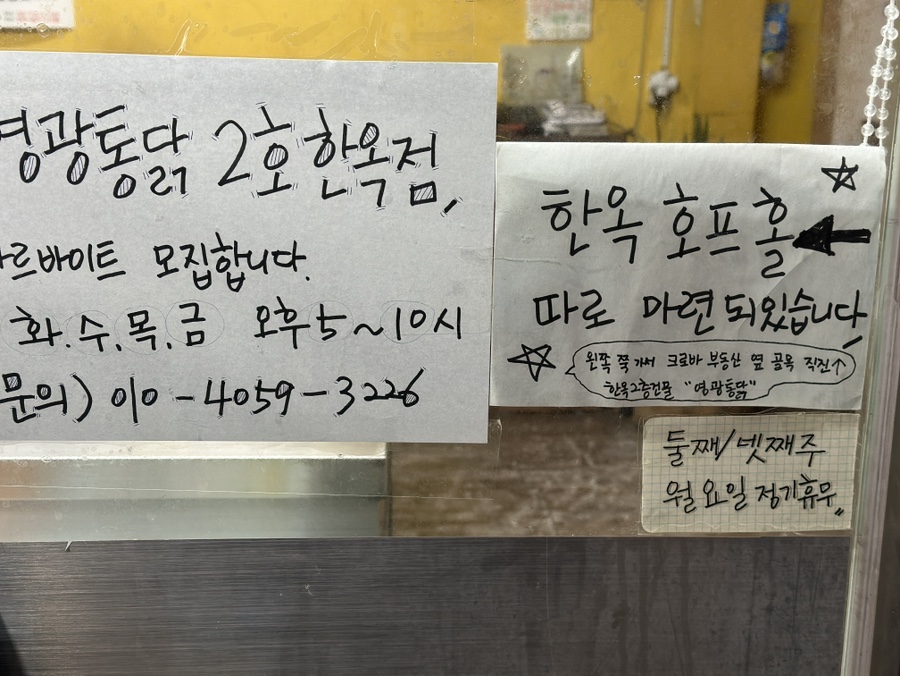 영광통닭 2호 한옥점,
아르바이트 모집합니다.
화.수.목.금 오후 5~10시
문의) 010-4059-3226
한옥 호프 홀
따로 마련되있습니다
왼쪽 쭉 가서 크로바 부동산 옆 골목 직진↑
한옥2층건물 "영광통닭"
둘째/넷째주
월요일 정기휴무